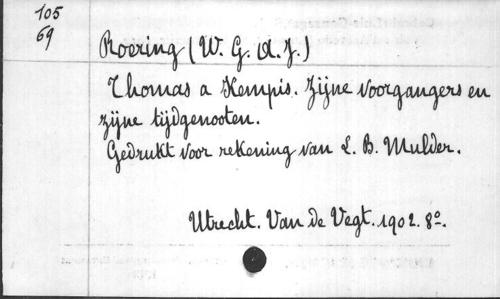 105
69
Roering (W. G. A. J.)
Thomas a Kempis. Zijne voorgangers en
zijne tijdgenooten.
Gedrukt voor rekening van L. B. Mulder.
Utrecht. Van de Vegt. 1902. 8o.